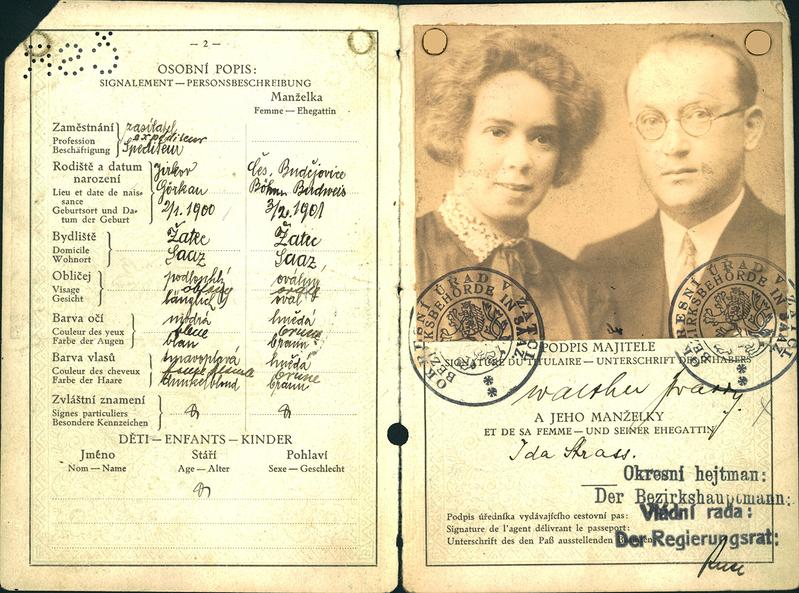 — 2 —
OSOBNÍ POPIS:
SIGNALEMENT — PERSONSBESCHREIBUNG
Manželka
Femme — Ehegattin
Zaměstnání
Profession
Beschäftigung
zasílatel
expediteur
Spediteur
Rodiště a datum
narození
Lieu et date de nais-
sance
Geburtsort und Da-
tum der Geburt
Jirkov
Görkau
2/1. 1900
Čes. Budějovice
Böhm. Budweis
3/2. 1901
Bydliště
Domicile
Wohnort
Žatec
Saaz
Žatec
Saaz
Obličej
Visage
Gesicht
podlouhlý
oblong
länglich
oválný
ovale
oval
Barva očí
Couleur des yeux
Farbe der Augen
modrá
bleue
blau
hnědá
brune
braun
Barva vlasů
Couleur des cheveux
Farbe der Haare
tmavoplavá
dunkelblond
hnědá
brune
braun
Zvláštní znamení
Signes particuliers
Besondere Kennzeichen
DĚTI — ENFANTS — KINDER
Jméno Stáří Pohlaví
Nom — Name Age — Alter Sexe — Geschlecht
OKRESNÍ ÚŘAD V ŽATCI
BEZIRKSBEHÖRDE IN SAAZ
OKRESNÍ ÚŘAD V ŽATCI
BEZIRKSBEHÖRDE IN SAAZ
PODPIS MAJITELE
SIGNATURE DU TITULAIRE — UNTERSCHRIFT DES INHABERS
Walther
A JEHO MANŽELKY
ET DE SA FEMME — UND SEINER EHEGATTIN
Ida Strass.
Okresní hejtman:
Der Bezirkshauptmann:
Vládní rada:
Podpis úředníka vydávajícího cestovní pas:
Signature de l'agent délivrant le passeport:
Unterschrift des den Paß ausstellenden
Der Regierungsrat: